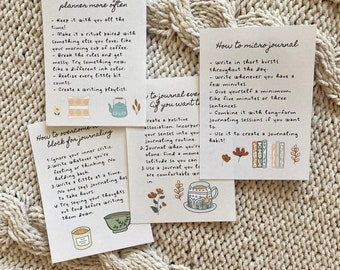 planner more often
- Keep it with you all the
time!
- Make it a ritual paired with
something else you love, like
your morning cup of coffee.
- Break the rules and get
messy. Try something new,
like a different ink color.
- Realise every little bit
counts.
- Create a writing playlist.
How to micro journal
- Write in short bursts
throughout the day.
- Write whenever you have a
few minutes.
- Give yourself a minimum,
like five minutes or three
sentences.
- Combine it with long-form
journaling sessions if you want
to.
- Use it to create a journaling
habit!
to journal eve
(if you want t
create a positive
association. Incorpor
your senses into your
journaling routine.
2. Journal when you're
alone. Find a momen
solitude so you can
3. Use language you
are comfortable wi
in.
How to overcome
block for journaling
1. Ignore your inner critic.
Write whatever you're
feeling or thinking. No
holding back.
Write a little at a time.
No one says journaling has
to take hours.
4. Try saying your thoughts
out loud before writing
them down.